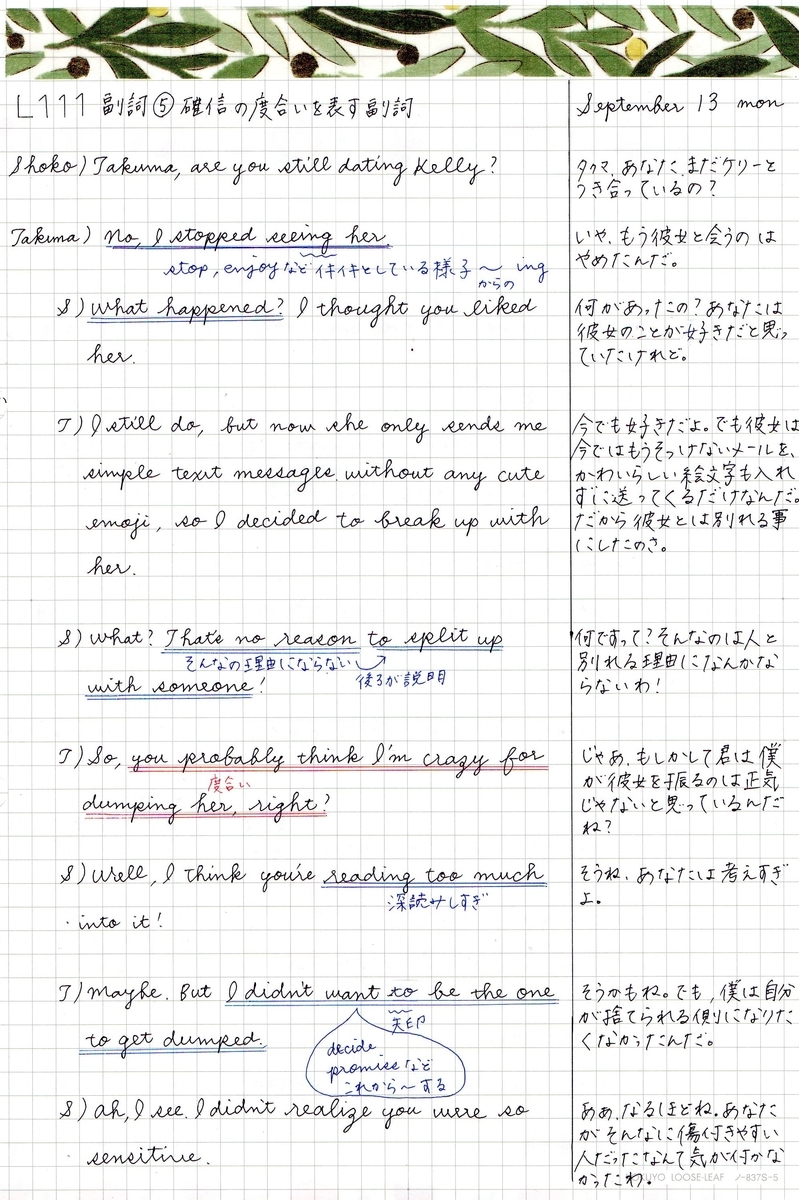 L111 副詞⑤ 確信の度合いを表す副詞
September 13 mon
Shoko) Takuma, are you still dating Kelly?
タクマ、あなた、まだケリーと
つき合っているの?
Takuma) No, I stopped seeing her.
stop, enjoy など イキイキとしている様子 〜 ing
からの
いや、もう彼女と会うのは
やめたんだ。
S) What happened? I thought you liked
her.
何があったの?あなたは
彼女のことが好きだと思っ
ていたけれど。
T) I still do, but now she only sends me
simple text messages without any cute
emoji, so I decided to break up with
her.
今でも好きだよ。でも彼女は
今ではもうそっけないメールを、
かわいらしい絵文字も入れ
ずに送ってくるだけなんだ。
だから彼女とは別れる事
にしたのさ。
S) What? That's no reason to split up
そんなの理由にならない
後ろが説明
with someone!
何ですって?そんなのは人と
別れる理由になんかな
らないわ!
T) So, you probably think I'm crazy for
度合い
dumping her, right?
じゃあ、もしかして君は僕
が彼女を振るのは正気
じゃないと思っているんだ
ね?
S) Well, I think you're reading too much
深読みしすぎ
into it!
そうね、あなたは考えすぎ
よ。
T) Maybe. But I didn't want to be the one
矢印
to get dumped.
decide
promise など
これから〜する
そうかもね。でも、僕は自分
が捨てられる側になりた
くなかったんだ。
S) Ah, I see. I didn't realize you were so
sensitive.
ああ、なるほどね。あなた
がそんなに傷付きやすい
人だったなんて気が付かな
かったわ。
KUYO LOOSE-LEAF ノ-837S-5